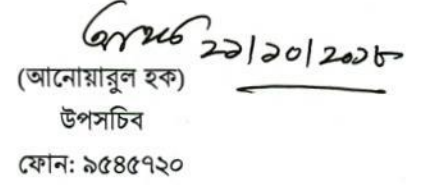 ২১/১০/২০১৮
(আনোয়ারুল হক)
উপসচিব
ফোন: ৯৫৪৫৭২০